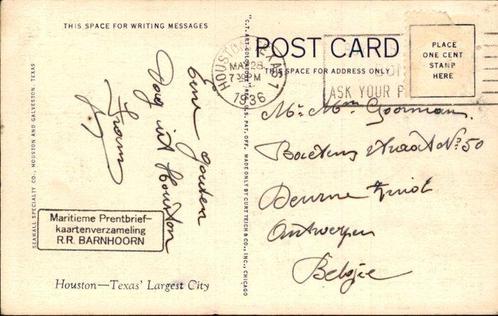 THIS SPACE FOR WRITING MESSAGES
SEAWALL SPECIALTY CO., HOUSTON AND GALVESTON, TEXAS
Een goeden
dag uit Houston
Frans
Maritieme Prentbrief-
kaartenverzameling
R.R. BARNHOORN
Houston—Texas' Largest City
"C.T. ART-COLORTONE" REG. U.S. PAT. OFF. MADE ONLY BY CURT TEICH & CO., INC., CHICAGO
HOUSTON, TEXAS 1
MAY 28
7 30 PM
1936
POST CARD
THIS SPACE FOR ADDRESS ONLY
ASK YOUR P
PLACE
ONE CENT
STAMP
HERE
Mr Mme Goormans
straat No 50
Deurne
Antwerpen
Belgie